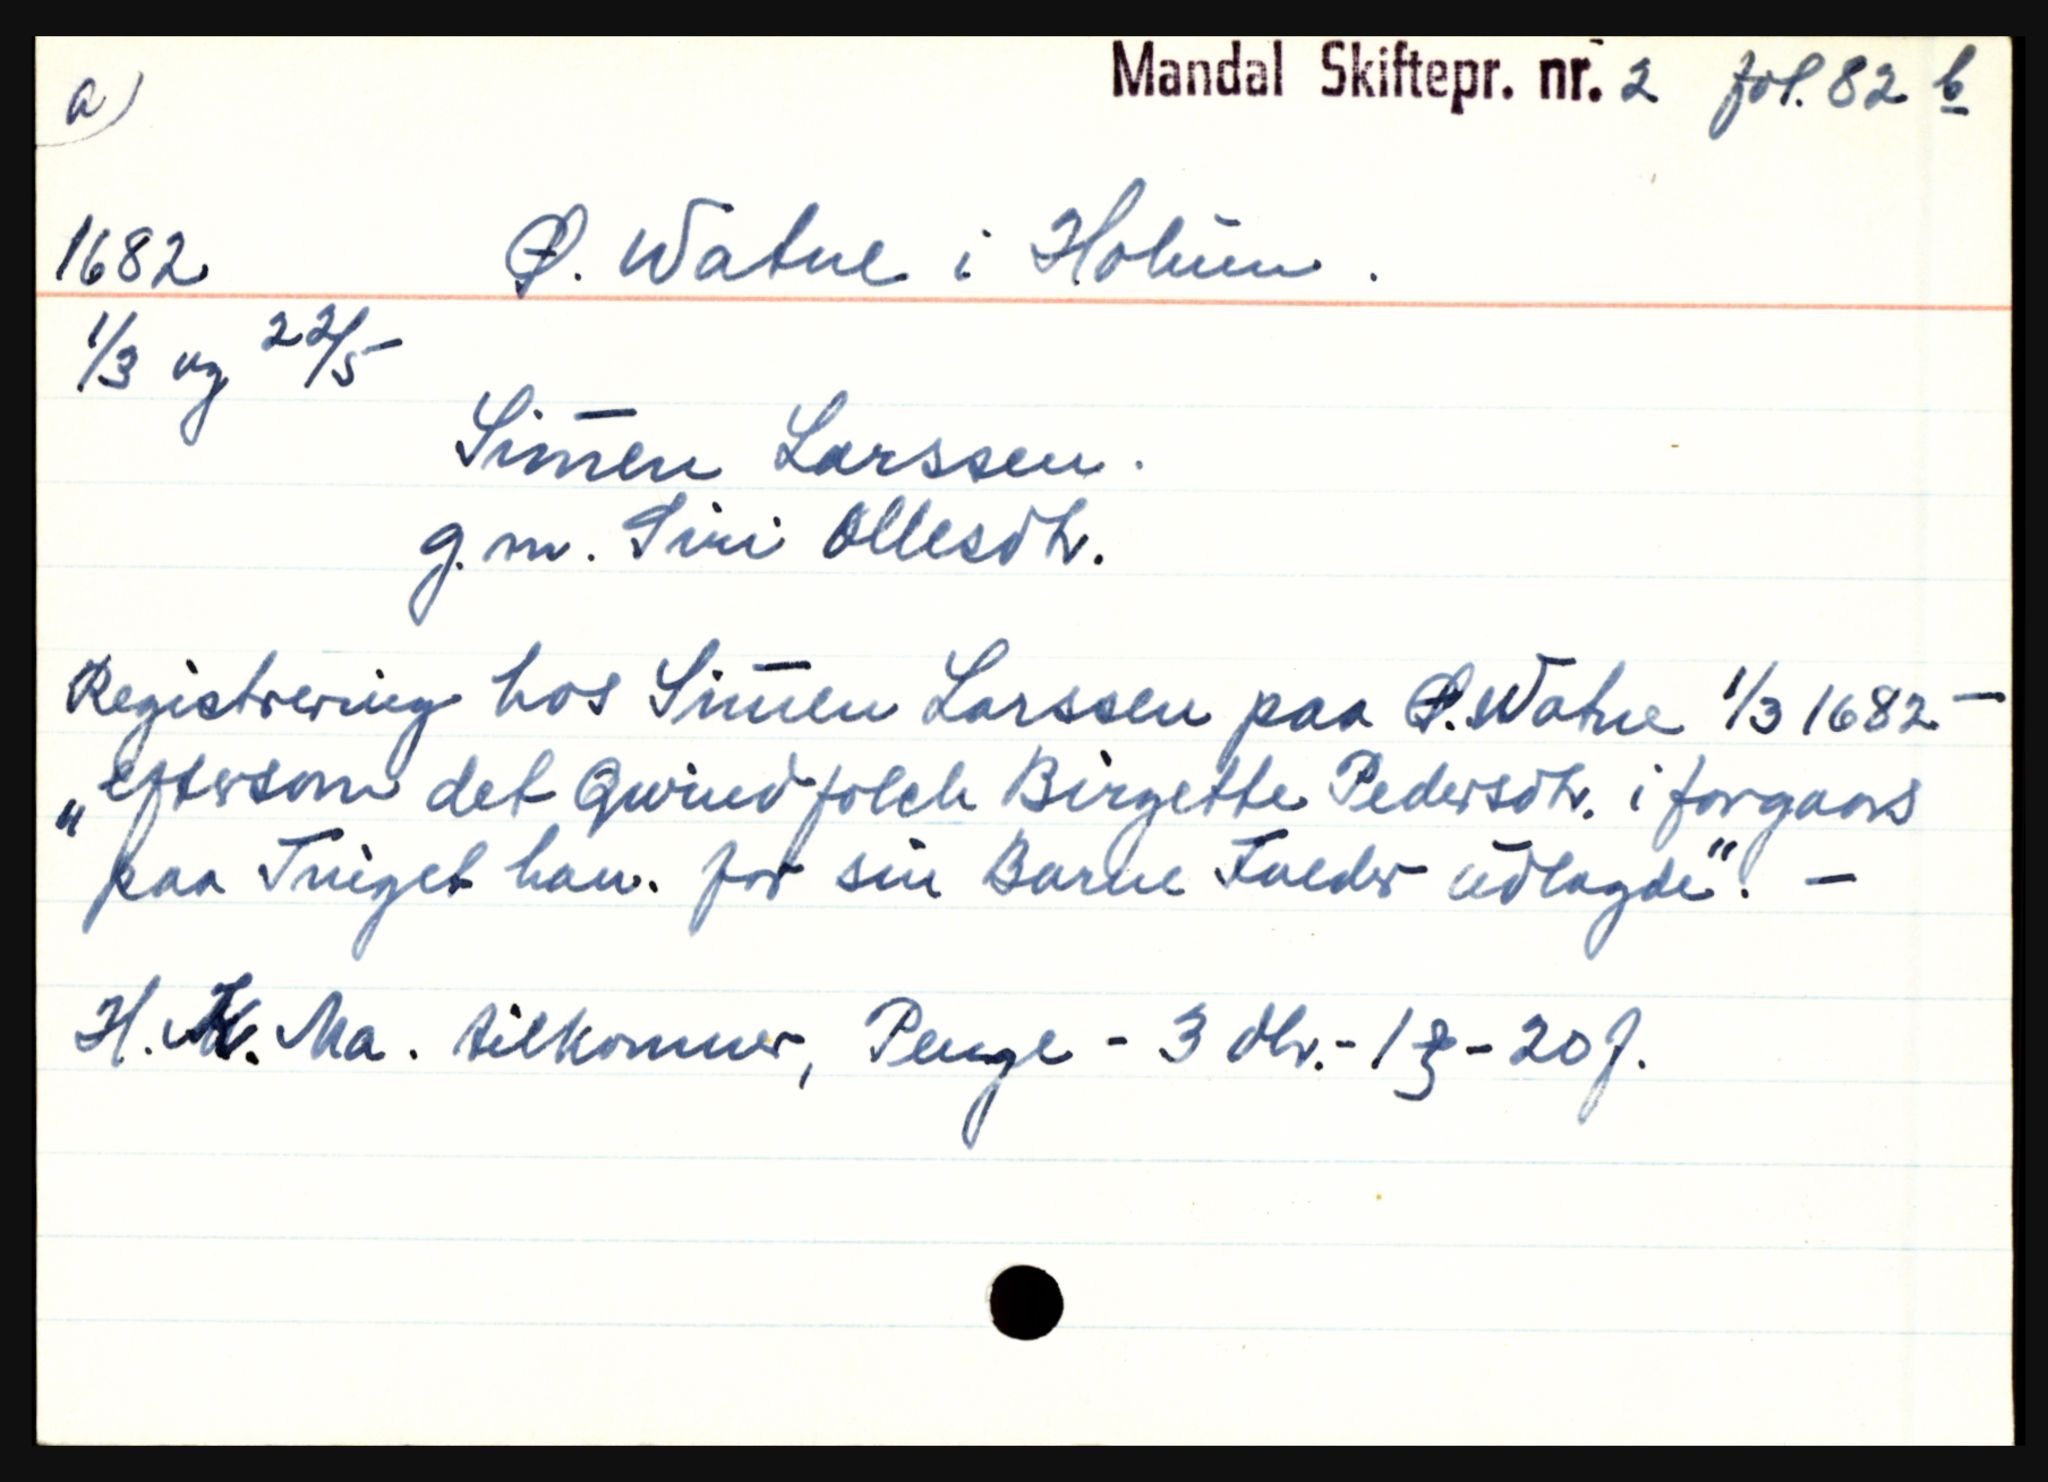 a)
Mandal Skiftepr. nr. 2 fol. 82 b
1682 Ø. Watne i Holum.
1/3 og 22/5
Simen Larssen.
g. m. Siri Ollesdtr.
Registrering hos Simen Larssen paa Ø. Watne 1/3 1682 -
"eftersom det Qwindfolch Birgette Pedersdtr. i forgaars
paa Tinget han. for sin Barne Fader udlagde". -
H. K. Ma. tilkommer, Penge - 3 dlr. - 1 - 20 ſ.